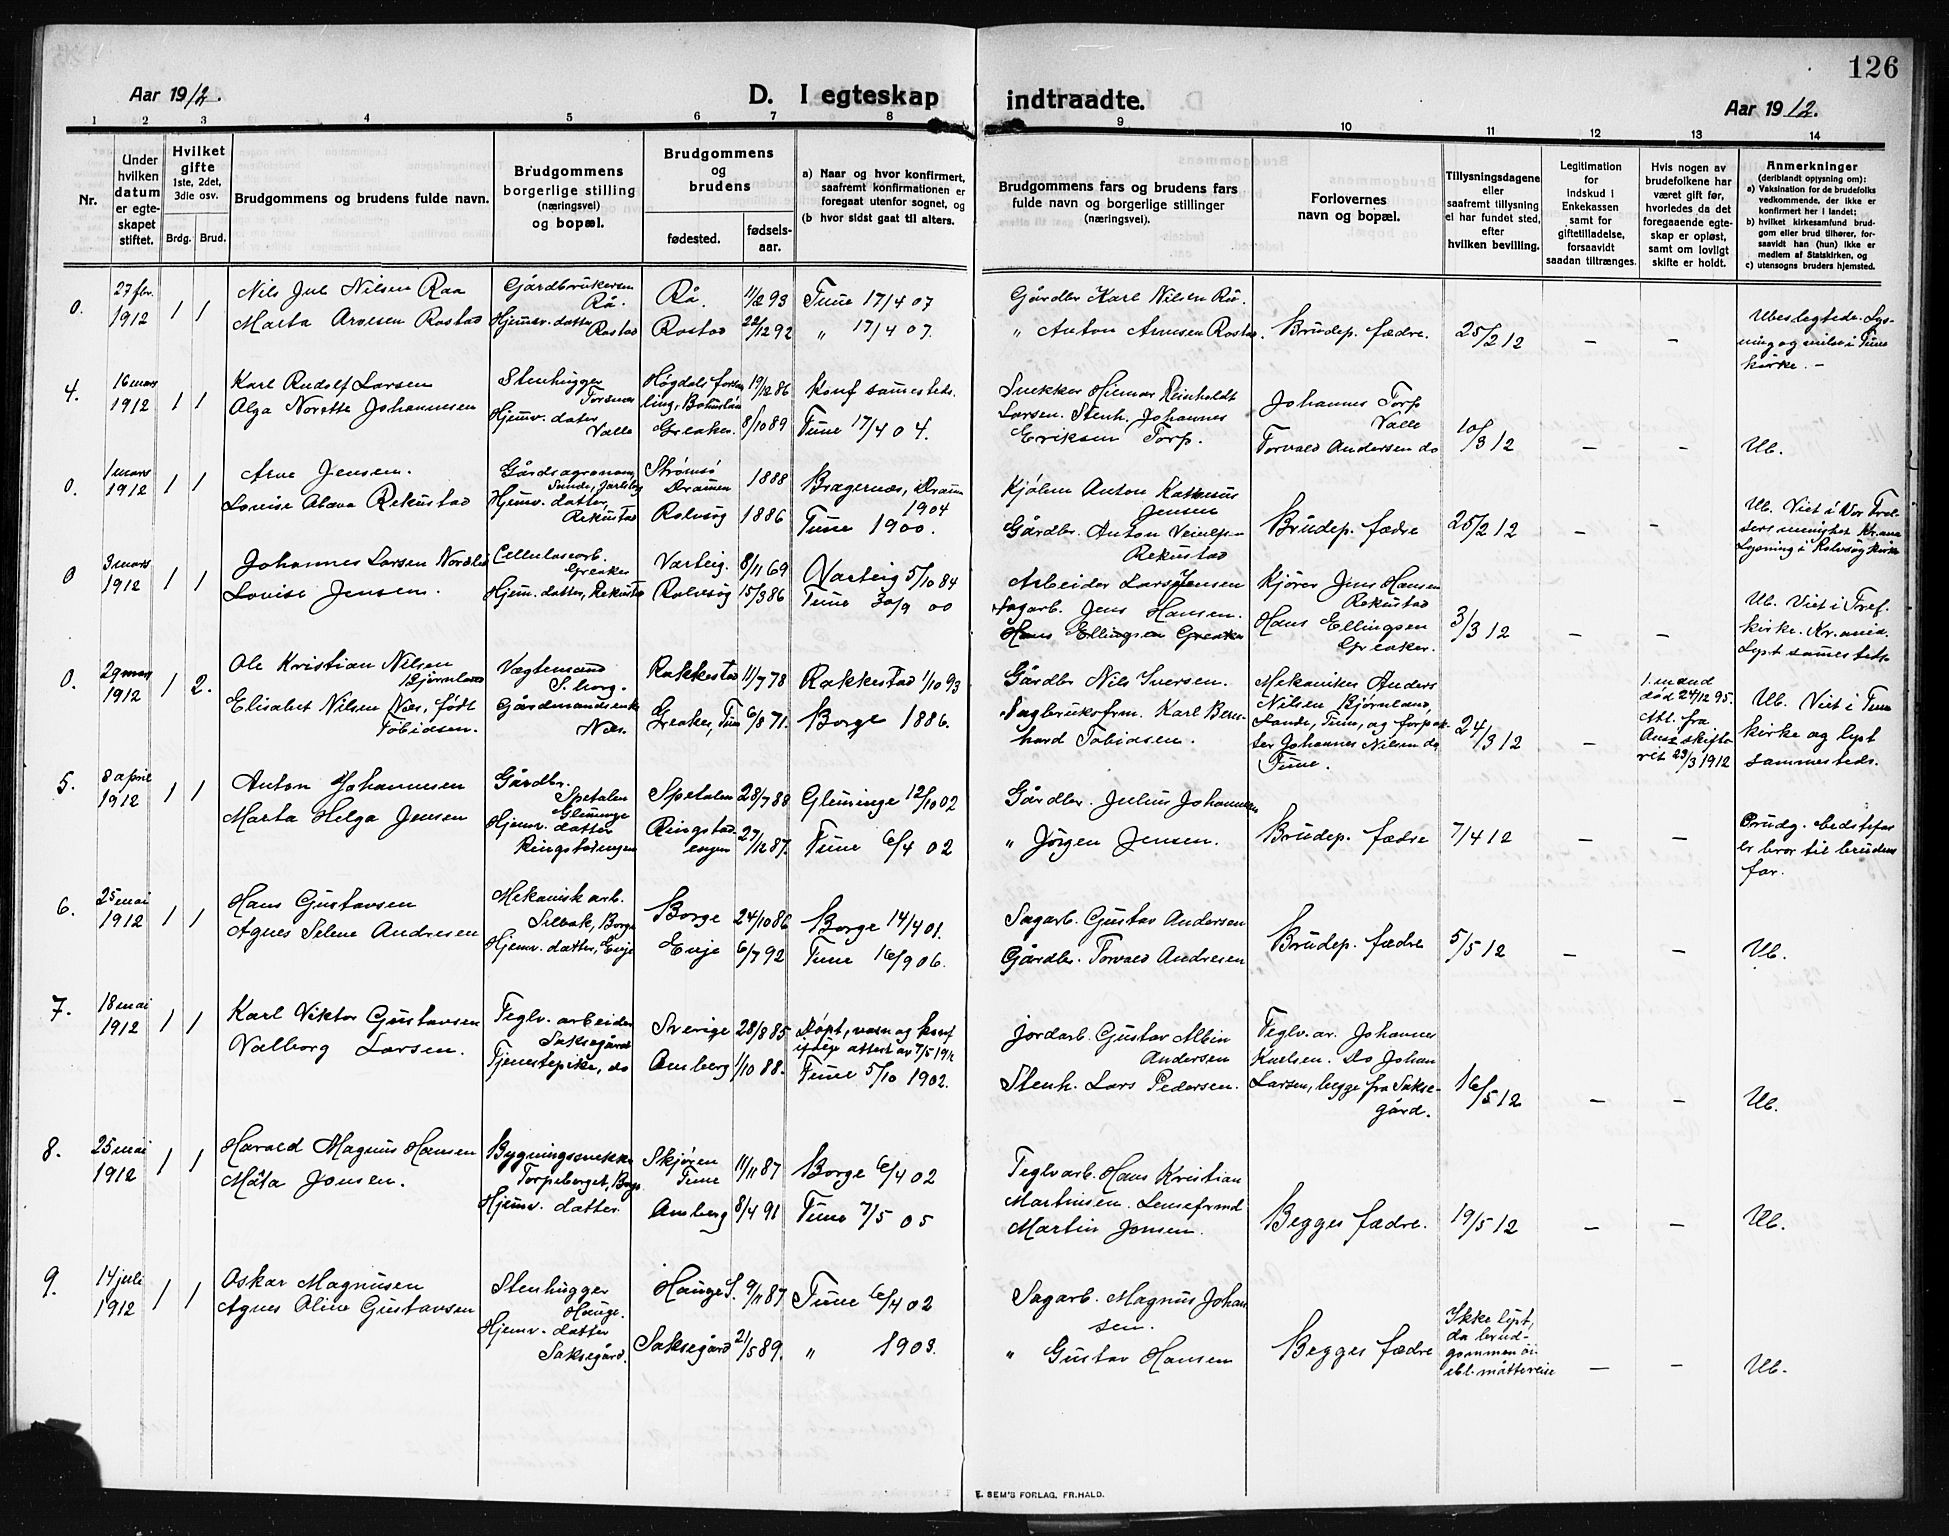 126
Aar 1912.
D. I egteskap indtraadte.
Aar 1912.
1 2 3 4 5 6 7 8 9 10 11 12 13 14
Nr.
Under hvilken datum er egteskapet stiftet.
Hvilket gifte 1ste, 2det, 3die osv.
Brdg. Brud.
Brudgommens og brudens fulde navn.
Brudgommens borgerlige stilling (næringsvei) og bopæl.
Brudgommens og brudens
fødested.
fødselsaar.
a) Naar og hvor konfirmert, saafremt konfirmationen er foregaat utenfor sognet, og
(b hvor sidst gaat til alters.
Brudgommens fars og brudens fars fulde navn og borgerlige stillinger (næringsvei).
Forlovernes navn og bopæl.
Tillysningsdagene eller saafremt tillysning ei har fundet sted, efter hvilken bevilling.
Legitimation for indskud i Enkekassen samt for giftetilladelse, forsaavidt saadan tiltrænges.
Hvis nogen av brudefolkene har været gift før, hvorledes da det foregaaende egteskap er opløst, samt om lovligt skifte er holdt.
Anmerkninger (deriblandt oplysning om):
a) Vaksination for de brudefolks vedkommende, der ikke er konfirmert her i landet;
b) hvilket kirkesamfund brudgom eller brud tilhører, forsaavidt han (hun) ikke er medlem av Statskirken, og
c) utensogns bruders hjemsted.
0. 27 fbr. 1912 1 1
Nils Jul Nilsen Raa
Marta Arvesen Rostad
Gårdbrukersøn Rå.
Hjemv. datter Rostad
Rå. 11/2 93 Tune 17/4 07
Rostad 22/12 92 " 17/4 07.
Gårdbr Karl Nilsen Rå.
" Anton Arvesen Rostad.
Brudep. fædre.
25/2 12 – –
Ubeslegtede. Lysning og vielse i Tune kirke. –
4. 16 mars 1912 1 1
Karl Rudolf Larsen
Olga Norette Johannesen
Stenhugger
Hjemv. datter Valle
Greaker. 19/12 86 Konf sammesteds.
8/10 89 Tune 17/4 04.
Snekker Hjemar Reinholdt Larsen. Stenh. Johannes Eriksen Torp.
Johannes Torp Valle
Torvald Andersen do
10/3 12 – – Ub.
0. 1 mars 1912 1 1
Arne Jensen.
Lovise Olava Rekustad
Gårdsagronom, Sande, Jarlsberg
Hjemv. datter, Rekustad
Strømsø Dramen 1888 Bragernæs, Dramen 1904
Rolvsøy 1886 Tune 1900.
Kjølem Anton Jensen
Gårdbr. Anton Rekustad
Brudep. fædre
25/2 12 – –
Ub. Viet i Vor Frelsers menighet Kr.ania Lysning i Rolvsøy kirke
0 3 mars 1912 1 1
Johannes Larsen Nordli
Lovise Jensen.
Cellulosearb. Greaker
Hjem. datter, Rekustad
Varteig. 8/11 69 Varteig 5/10 84
Rolvsøy 15/3 86 Tune 30/9 00
Arbeider Lars Jensen
Sagarb. Jens Hansen.
Hans Ellingsen Greaker
Kjører Jens Hansen Rekustad
Hans Ellingsen Greaker.
3/3 12 – –
Ub. Viet i Tref. kirke. Kr.ania. Lyst sammesteds
0. 29 mars 1912 1 2.
Ole Kristian Nilsen Bjørnland
Elisabet Nilsen Næs, født Tobiasen.
Vægtemand S.borg.
Gårdmandsenke Næs.
Rakkestad 11/7 78 Rakkestad 1/10 93
Greaker, Tune 6/8 71. Borge 1886.
Gårdbr Nils Iversen.
Sagbruksfrm. Karl Bernhard Tobiasen.
Mekaniker Anders Nilsen Bjørnland, Sande, Tune, og forpakter Johannes Nilsen do Tune.
24/3 12 –
1. mand død 24/12 95. Att. fra skifteret 23/3 1912
Ub. Viet i Tune kirke og lyst sammesteds.
5. 8 april 1912 1 1
Anton Johannesen
Marta Helga Jensen
Gårdbr. Spetalen Glemminge
Hjemv. datter Ringstadengen
Spetalen 28/7 88 Glemminge 12/10 02
Ringstadengen 27/12 87. Tune 6/4 02
Gårdbr. Julius Johannesen
" Jørgen Jensen.
Brudep. fædre
7/4 12 – –
Brudg. bedstefar er bror til brudens far.
6. 25 mai 1912 1 1
Hans Gustavsen
Agnes Selene Andresen
Mekanisk arb. Selbak, Borge
Hjemv. datter, Evje
Borge 24/10 86 Borge 14/4 01.
Evje 6/7 92 Tune 16/9 06.
Sagarb. Gustav Andersen
Gårdbr. Torvald Andresen
Brudep. fædre
5/5 12 – – Ub.
7. 18 mai 1912 1 1
Karl Viktor Gustavsen
Valborg Larsen.
Teglv. arbeider Saksegård
Tjenestepike, do
Sverige 28/8 85 Døpt, vacn og konf ifølge attest av 7/5 1912
Amberg 1/10 88. Tune 5/10 1902.
Jordarb. Gustav Albin Andersen
Stenh. Lars Pedersen.
Teglv. ar. Johannes Karlsen. Do Johan Larsen, begge fra Saksegård.
16/5 12 – – Ub.
8. 25 mai 1912 1 1
Harald Magnus Hansen
Måta Jonsen.
Bygningssnekker Torpeberget, Borge
Hjemv. datter
Skjøren Tune 11/11 87 Borge 6/4 02
Amberg 8/4 91 Tune 7/5 05
Teglvarb. Hans Kristian Martinsen. Lensefrmd Martin Jonsen.
Begges fædre.
19/5 12 – – Ub.
9. 14 juli 1912 1 1
Oskar Magnusen
Agnes Oline Gustavsen
Stenhugger Hauge.
Hjemv. datter Saksegård.
Hauge S. 9/11 87 Tune 6/4 02
Saksegård 21/5 89. " 1903.
Sagarb. Magnus Johansen.
" Gustav Hansen
Begges fædre
Ikke lyst, da brudgommen måtte reise
– – Ub.
E. SEM'S FORLAG, FR.HALD.